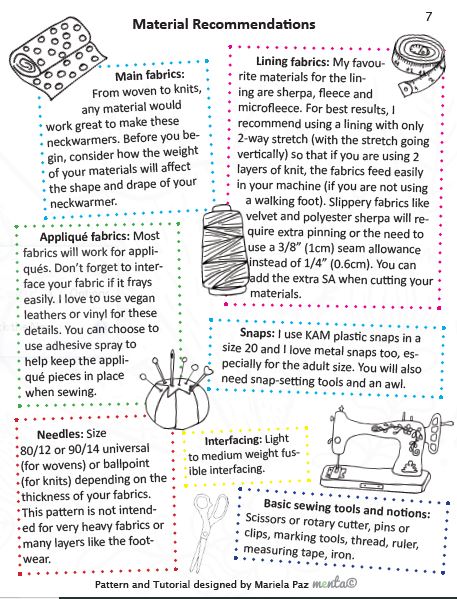 7
Material Recommendations
Main fabrics:
From woven to knits,
any material would
work great to make these
neckwarmers. Before you be-
gin, consider how the weight
of your materials will affect
the shape and drape of your
neckwarmer.
Lining fabrics: My favou-
rite materials for the lin-
ing are sherpa, fleece and
microfleece. For best results, I
recommend using a lining with only
2-way stretch (with the stretch going
vertically) so that if you are using 2
layers of knit, the fabrics feed easily
in your machine (if you are not using
a walking foot). Slippery fabrics like
velvet and polyester sherpa will re-
quire extra pinning or the need to
use a 3/8” (1cm) seam allowance
instead of 1/4” (0.6cm). You can
add the extra SA when cutting your
materials.
Appliqué fabrics: Most
fabrics will work for appli-
qués. Don’t forget to inter-
face your fabric if it frays
easily. I love to use vegan
leathers or vinyl for these
details. You can choose to
use adhesive spray to
help keep the appli-
qué pieces in place
when sewing.
Snaps: I use KAM plastic snaps in a
size 20 and I love metal snaps too, es-
pecially for the adult size. You will also
need snap-setting tools and an awl.
Needles: Size
80/12 or 90/14 universal
(for wovens) or ballpoint
(for knits) depending on the
thickness of your fabrics.
This pattern is not intend-
ed for very heavy fabrics or
many layers like the foot-
wear.
Interfacing: Light
to medium weight fus-
ible interfacing.
Basic sewing tools and notions:
Scissors or rotary cutter, pins or
clips, marking tools, thread, ruler,
measuring tape, iron.
Pattern and Tutorial designed by Mariela Paz menta©